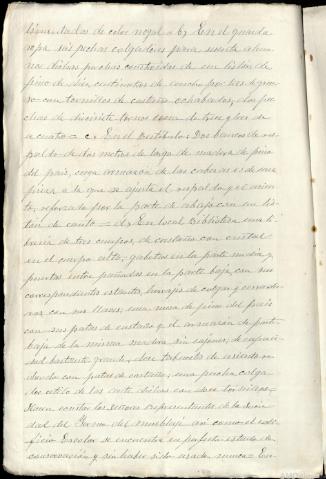 limentadas de color nogal = b, En el guarda
ropa seis perchas colgadores para sesenta alum
nos dichas perchas construidas de un liston de
pino de diez centimetros de ancho por tres de grue
so con tornillos de castaño ochabados, dos per
chas de diecisiete tornos
a cuatro = c. En el Vestibulo, Dos bancos de res
paldo de dos metros de largo de madera de pino
del pais, cuya armazon de las cabeceras de una
pieza a la que se ajusta el respaldo y el asien
to, reforzado por la parte de abajo con un lis
tón de canto = d, En local Biblioteca una li
breria de tres cuerpos, de castaño con cristal
en el cuerpo alto; gabetas en la parte media y
puertas entre pañadas en la parte baja, con sus
correspondientes estantes, herrajes de colgar y cerradu
ras con sus llaves; una mesa de pino del pais
con sus patas de castaño y el armazon de parte
baja de la misma madera sin cajones, de capaci
dad bastante grande, doce taburetes de asiento re
dondo con patas de castaño, una percha colga
dor estilo de las ante dichas con doce tornillos,
Hacen constar los señores representantes de la Socie
dad del Fomento del mueblaje asi como el edi
ficio Escolar se encuentra en perfecto estado de
conservación y sin haber sido usado nunca = En